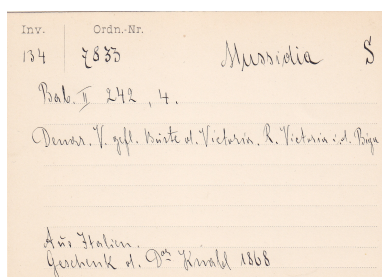 Inv. Ordn.-Nr.
134 7833 Mussidia S
Bab. II 242, 4.
Denar. V. gefl. Büste d. Victoria. R. Victoria i. d. Biga
Aus Italien.
Geschenk d. Dor Knabl 1868